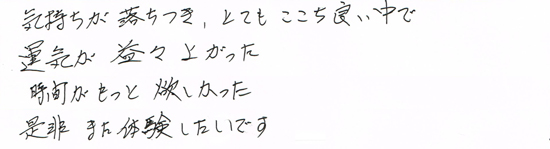 気持ちが落ちつき、とてもここち良い中で
運気が益々上がった
時間がもっと欲しかった
是非また体験したいです